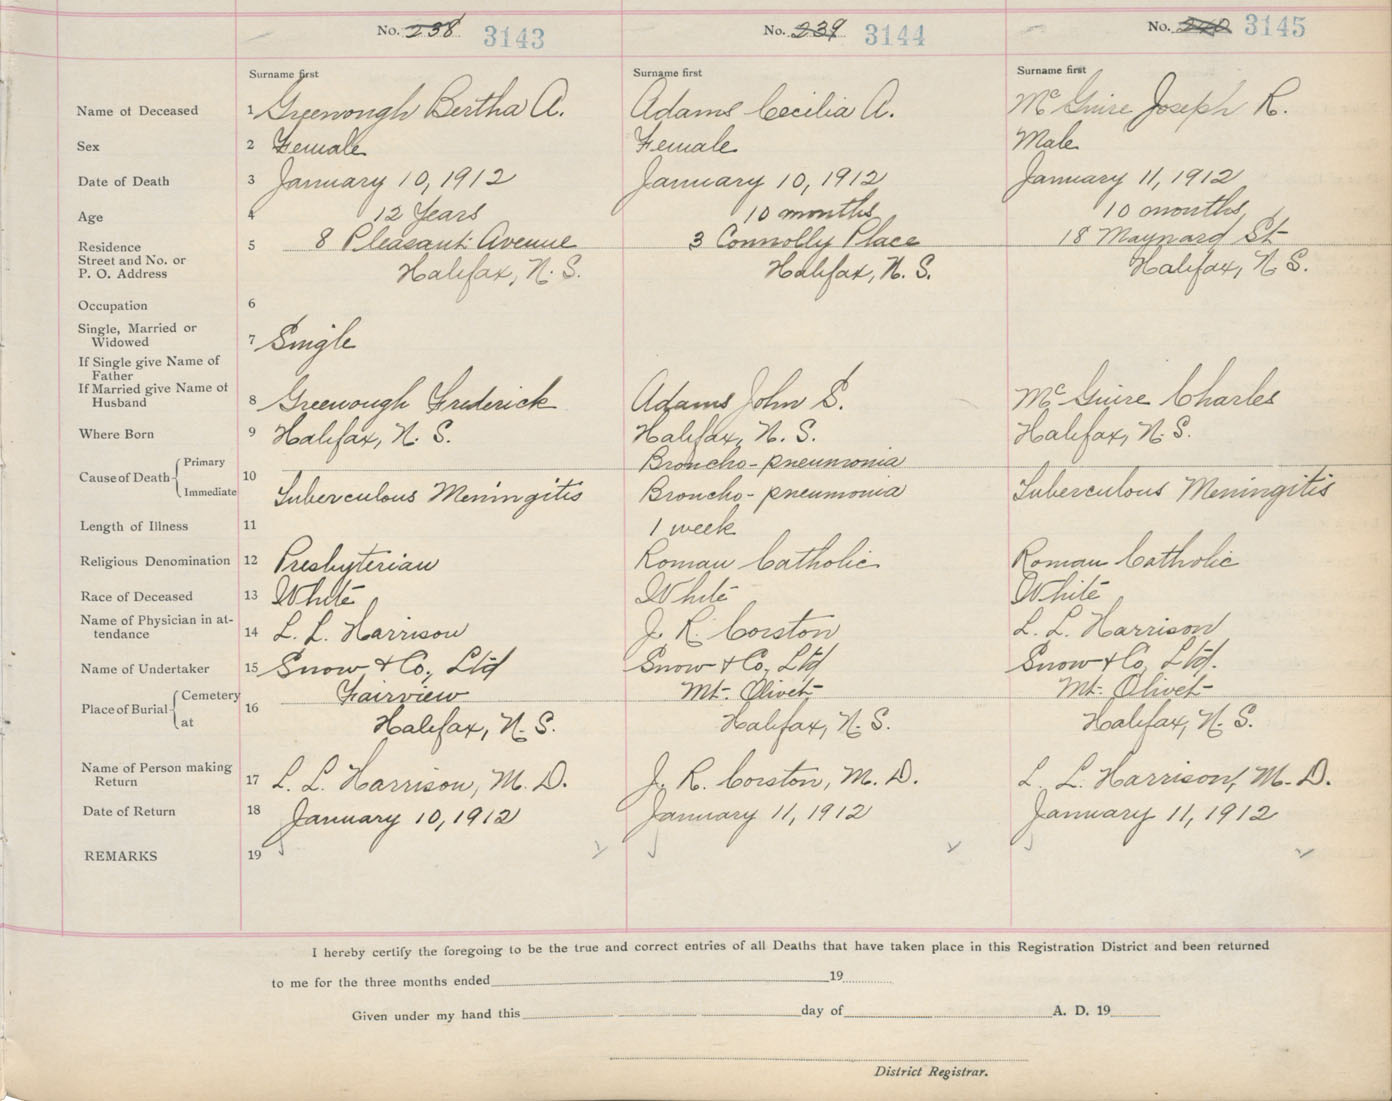 No. 238 3143 No. 239 3144 No. 240 3145
Surname first Surname first Surname first
Name of Deceased 1 Greenough Bertha A. Adams Cecilia A. McGuire Joseph R.
Sex 2 Female Female Male
Date of Death 3 January 10, 1912 January 10, 1912 January 11, 1912
Age 4 12 Years 10 months 10 months
Residence 5 8 Pleasant Avenue 3 Connolly Place 18 Maynard St
Street and No. or
P. O. Address Halifax, N. S. Halifax, N. S. Halifax, N S.
Occupation 6
Single, Married or
Widowed 7 Single
If Single give Name of
Father
If Married give Name of
Husband 8 Greenough Frederick Adams John S. McGuire Charles
Where Born 9 Halifax, N. S. Halifax, N. S. Halifax, N. S.
Cause of Death Primary 10 Broncho-pneumonia
Immediate Tuberculous Meningitis Broncho-pneumonia Tuberculous Meningitis
Length of Illness 11 1 week
Religious Denomination 12 Presbyterian Roman Catholic Roman Catholic
Race of Deceased 13 White White White
Name of Physician in at-
tendance 14 L. L. Harrison J. R. Corston L. L. Harrison
Name of Undertaker 15 Snow & Co, Ltd Snow & Co, Ltd Snow & Co, Ltd.
Place of Burial Cemetery 16 Fairview Mt. Olivet Mt. Olivet
at Halifax, N. S. Halifax, N. S. Halifax, N. S.
Name of Person making
Return 17 L. L. Harrison, M. D. J. R. Corston, M. D. L. L. Harrison, M. D.
Date of Return 18 January 10, 1912 January 11, 1912 January 11, 1912
REMARKS 19
I hereby certify the foregoing to be the true and correct entries of all Deaths that have taken place in this Registration District and been returned
to me for the three months ended 19
Given under my hand this day of A. D. 19
District Registrar.